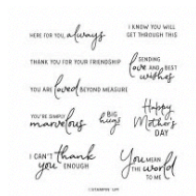 HERE FOR YOU always
I KNOW YOU WILL
GET THROUGH THIS
THANK YOU FOR YOUR FRIENDSHIP
SENDING
love AND BEST
wishes
YOU ARE loved BEYOND MEASURE
YOU'RE SIMPLY
marvelous
big
hugs
Happy
Mother's
DAY
I CAN'T thank
YOU ENOUGH
You MEAN
THE world
TO ME